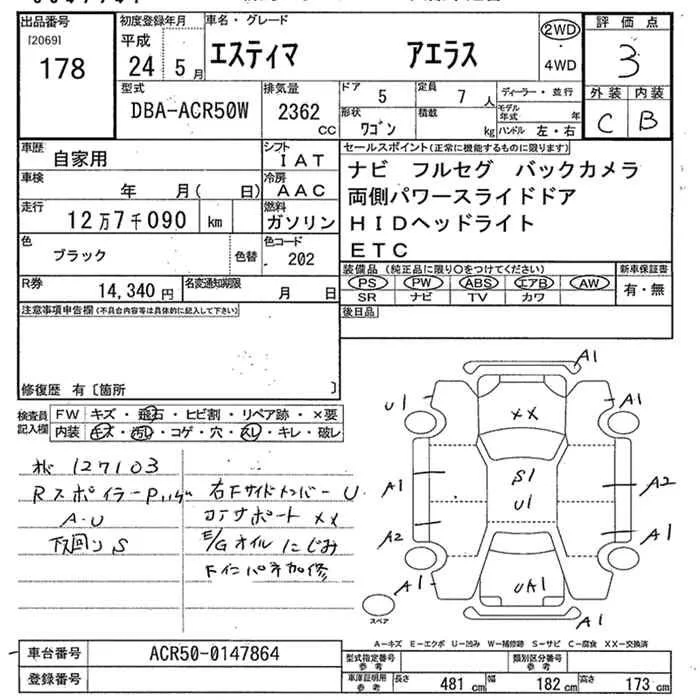 出品番号
[2069]
178
初度登録年月
平成
24 5月
車名・グレード
エスティマ アエラス
2WD
・
4WD
評価点
3
外装 内装
C B
型式
DBA-ACR50W
排気量
2362
CC
ドア 5
定員 7 人
ディーラー・並行
モデル年式 年
形状 ワゴン
積載 kg
ハンドル 左・右
車歴
自家用
シフト
IAT
車検
年 月( 日)
冷房
AAC
走行
12万7千090 km
燃料
ガソリン
色
ブラック
色替
色コード
202
R券
14,340円
名変通知期限
月 日
セールスポイント(正常に機能するものに限ります)
ナビ フルセグ バックカメラ
両側パワースライドドア
HIDヘッドライト
ETC
装備品(純正品に限り〇をつけてください)
新車保証書
PS PW ABS エアB AW
SR ナビ TV カワ
有・無
後日品
注意事項申告欄(不具合内容等は具体的に記入して下さい)
修復歴 有〔箇所 〕
検査員記入欄
FW キズ・飛石・ヒビ割・リペア跡・×要
内装 キズ・汚れ・コゲ・穴・スレ・キレ・破レ
127103
Rスポイラー
A・U
下回り S
右Fサイドメンバー U
コアサポート ××
E/Gオイルにじみ
A1
U1
A1
××
A1
S1
U1
A2
A2
A1
A1
UA1
A1
A1
スペア
A-キズ E-エクボ U-凹み W-補修跡 S-サビ C-腐食 XX-交換済
車台番号
ACR50-0147864
登録番号
型式指定番号
参考
類別区分番号
参考
車庫証明用
参考
長さ 481 cm
幅 182 cm
高さ 173 cm